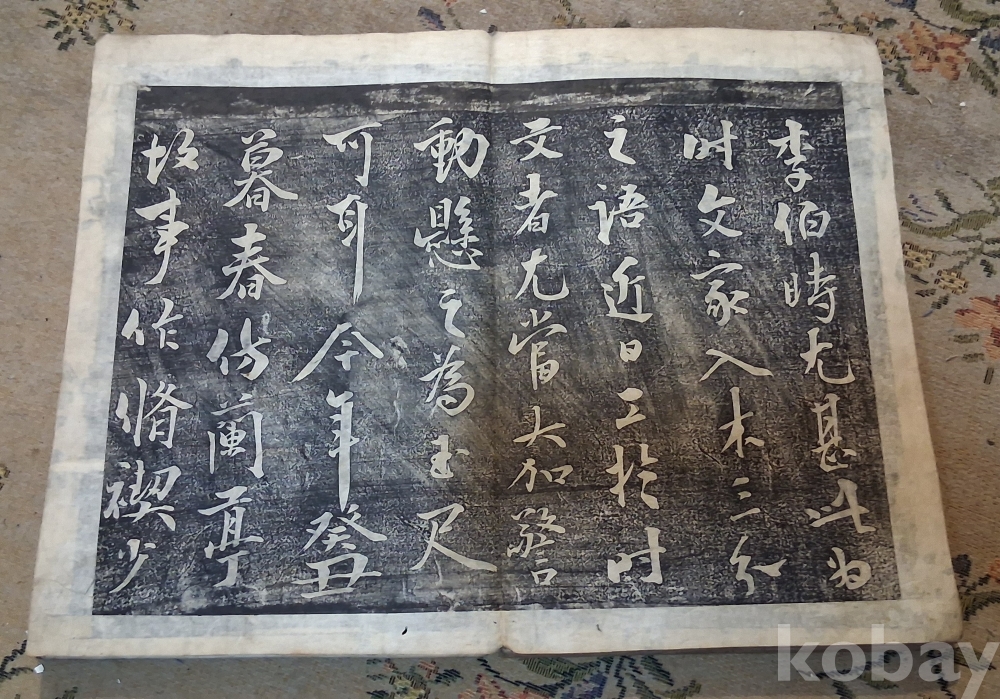 李伯時尤甚此為
时文家入木三分
之语近日工於时
文者尤當头加警
動懸之為玉尺
可耳今年癸丑
暮春仿蘭亭
故事作脩禊少
kobay